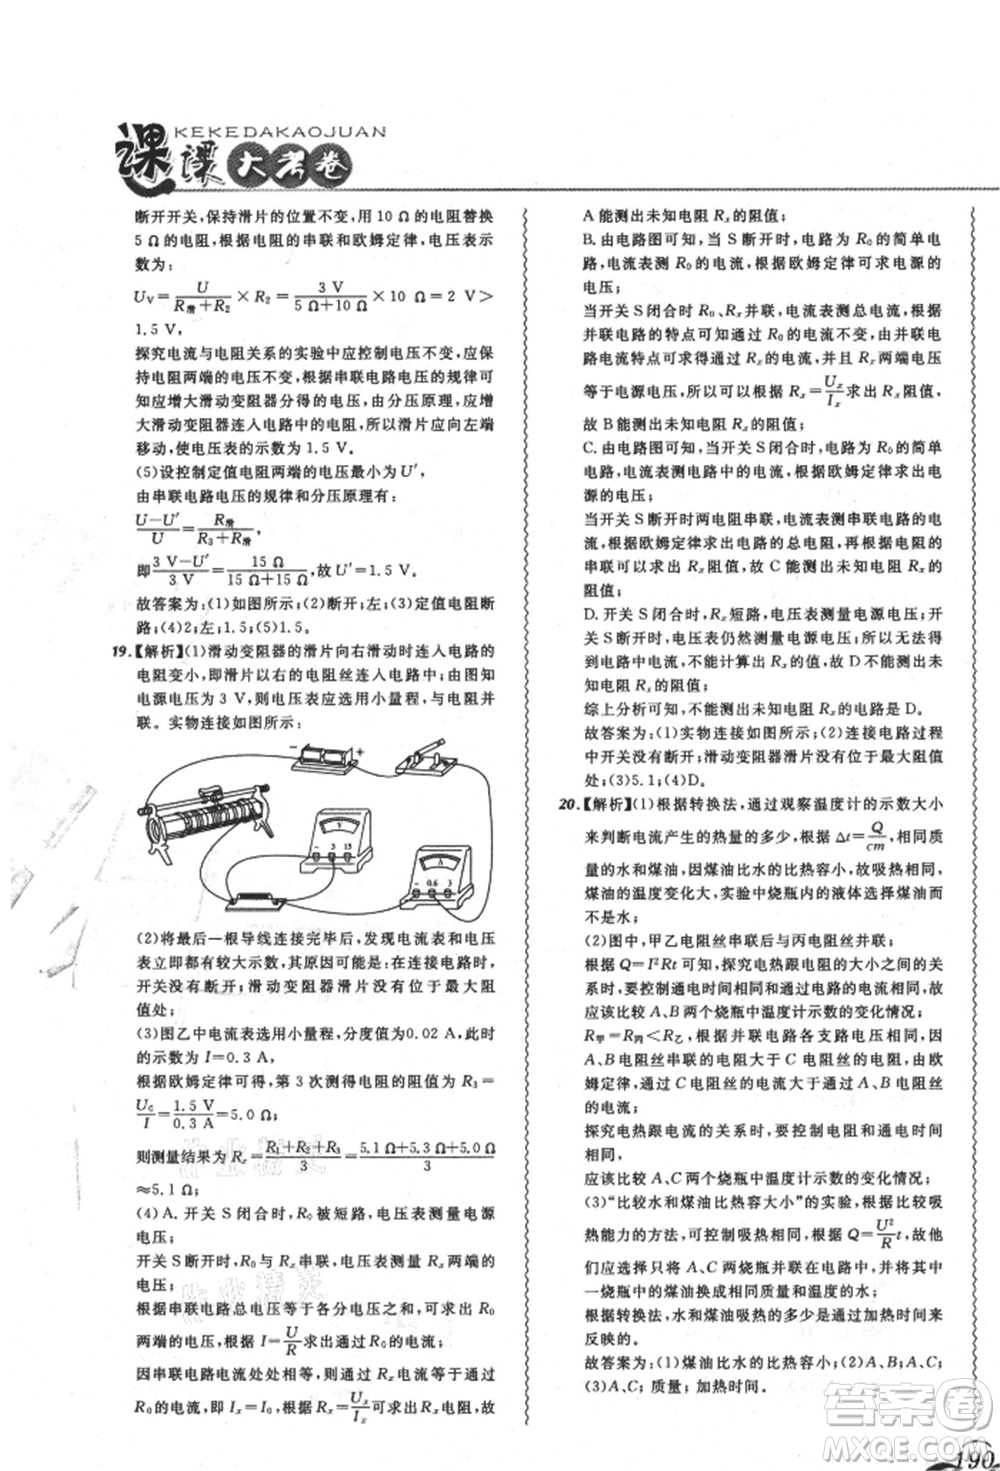 KEKEDAKAOJUAN
课课大考卷
断开开关,保持滑片的位置不变,用 10 Ω 的电阻替换
5 Ω 的电阻,根据电阻的串联和欧姆定律,电压表示
数为:
U_V=U/(R滑+R₂)×R₂=3 V/(5 Ω+10 Ω)×10 Ω=2 V>
1.5 V。
探究电流与电阻关系的实验中应控制电压不变,应保
持电阻两端的电压不变,根据串联电路电压的规律可
知应增大滑动变阻器分得的电压,根据分压原理,应增
大滑动变阻器连入电路中的电阻,故滑片应向左端
移动,使电压表的示数为 1.5 V。
(5)设控制定值电阻两端的电压最小为 U′,
由串联电路电压的规律和分压原理有:
(U−U′)/U=R滑/(R₃+R滑),
即(3 V−U′)/3 V=15 Ω/(15 Ω+15 Ω),故 U′=1.5 V。
故答案为:(1)如图所示;(2)断开;左;(3)定值电阻断
路;(4)2;左;1.5;(5)1.5。
19.【解析】(1)滑动变阻器的滑片向右滑动时连入电路的
电阻变小,即滑片以右的电阻丝连入电路中;由图知
电源电压为 3 V,则电压表应选小量程,与电阻并
联。实物连接如图所示:
− +
V
− 3 15
A
− 0.6 3
(2)将最后一根导线连接完毕后,发现电流表和电压
表立即都有较大示数,说明电路是通路,在连接电路时,
开关没有断开;滑动变阻器滑片没有移到最大阻
值处;
(3)图乙中电流表选用小量程,分度值为 0.02 A,此时
的示数为 I=0.3 A,
根据欧姆定律可得,第 3 次测得电阻的阻值为 R₃=
U₆/I=1.5 V/0.3 A=5.0 Ω,
则测量结果为 Rₓ=(R₁+R₂+R₃)/3=(5.1 Ω+5.3 Ω+5.0 Ω)/3
≈5.1 Ω;
(4)A. 开关 S 闭合时,R₀被短路,电压表测量电源
电压;
开关 S断开时,R₀与 Rₓ串联,电压表测量 Rₓ两端的
电压;
根据串联电路总电压等于各分电压之和可求出 R₀
两端的电压,根据 I=U/R求出通过 R₀的电流;
因串联电路电流处处相等,Rₓ电流等于通过
R₀的电流,即 Iₓ=I₀,根据 Rₓ=Uₓ/Iₓ求出 Rₓ的阻值,故
A能测出未知电阻 Rₓ的阻值;
B. 由电路图可知,当 S断开时,电路为 R₀的简单电
路,电流表测 R₀的电流,根据欧姆定律可求电源的
电压;
当开关 S闭合时 R₀、Rₓ并联,电流表测干路电流,根据
并联电路的特点可知通过 R₀的电流不变,由并联电
路电流特点可求得通过 Rₓ的电流,并且 Rₓ两端电压
等于电源电压,所以可以根据 Rₓ=Uₓ/Iₓ求出 Rₓ阻值,
故 B能测出未知电阻 Rₓ的阻值;
C. 由电路图可知,当开关 S闭合时,电路为 R₀的简单
电路,电流表测电路中的电流,根据欧姆定律求出电
源的电压;
当开关 S断开时两电阻串联,电流表测串联电路的电
流,根据欧姆定律求出电路的总电阻,再根据电阻的
串联可求 Rₓ的阻值,故 C能测出未知电阻 Rₓ
的阻值;
D. 开关 S闭合时,Rₓ短路,电压表测量电源电压;开
关 S断开时,电压表仍然测量电源电压,所以无法得
到电路中电流,不能计算出 Rₓ阻值,故 D不能测出未
知电阻 Rₓ的阻值;
综上分析可知,不能测出未知电阻 Rₓ的电路是 D。
故答案为:(1)实物连接如图所示;(2)连接电路过程
中开关没有断开;滑动变阻器滑片没有移到最大阻值
处;(3)5.1;(4)D。
20.【解析】(1)根据转换法,通过观察温度计的示数大小
来判断电流产生的热量的多少,根据 Δt=Q/cm,相同质
量的水和煤油,因煤油比水的比热容小,故吸热相同时,
煤油的温度变化大,实验中烧瓶内的液体选择煤油而
不是水;
(2)图中,甲乙电阻丝串联后与丙电阻丝并联;
根据 Q=I²Rt 可知,探究电热跟电阻的大小之间的关
系,要控制通电时间相同和通过电路的电流相同,故
应该比较 A、B 两个烧瓶中温度计示数的变化情况;
R甲=R丙<R乙,根据并联电路各支路电压相同,因
A、B 电阻丝串联的电阻大于 C 电阻丝的电阻,由欧
姆定律,通过 C 电阻丝的电流大于通过A、B 电阻丝
的电流;
探究电热跟电流的关系时,要控制电阻和通电时间
相同,
应该比较 A、C 两个烧瓶中温度计示数的变化情况;
(3)“比较水和煤油比热容大小”的实验,根据比较吸
热能力的方法,可控制吸热相同,根据 Q=U²/Rt,故他
们应选择只将 A、C 两烧瓶连入电路中,并且将其中
一烧瓶中的煤油换成相等质量和温度的水;
根据转换法,水和煤油吸热的多少是通过加热时间来
反映的。
故答案为:(1)煤油比水的比热容小;(2)A、B;A、C;
(3)A、C;质量;加热时间。
作业精灵
作业精灵
答案圈
MXQE.COM
190